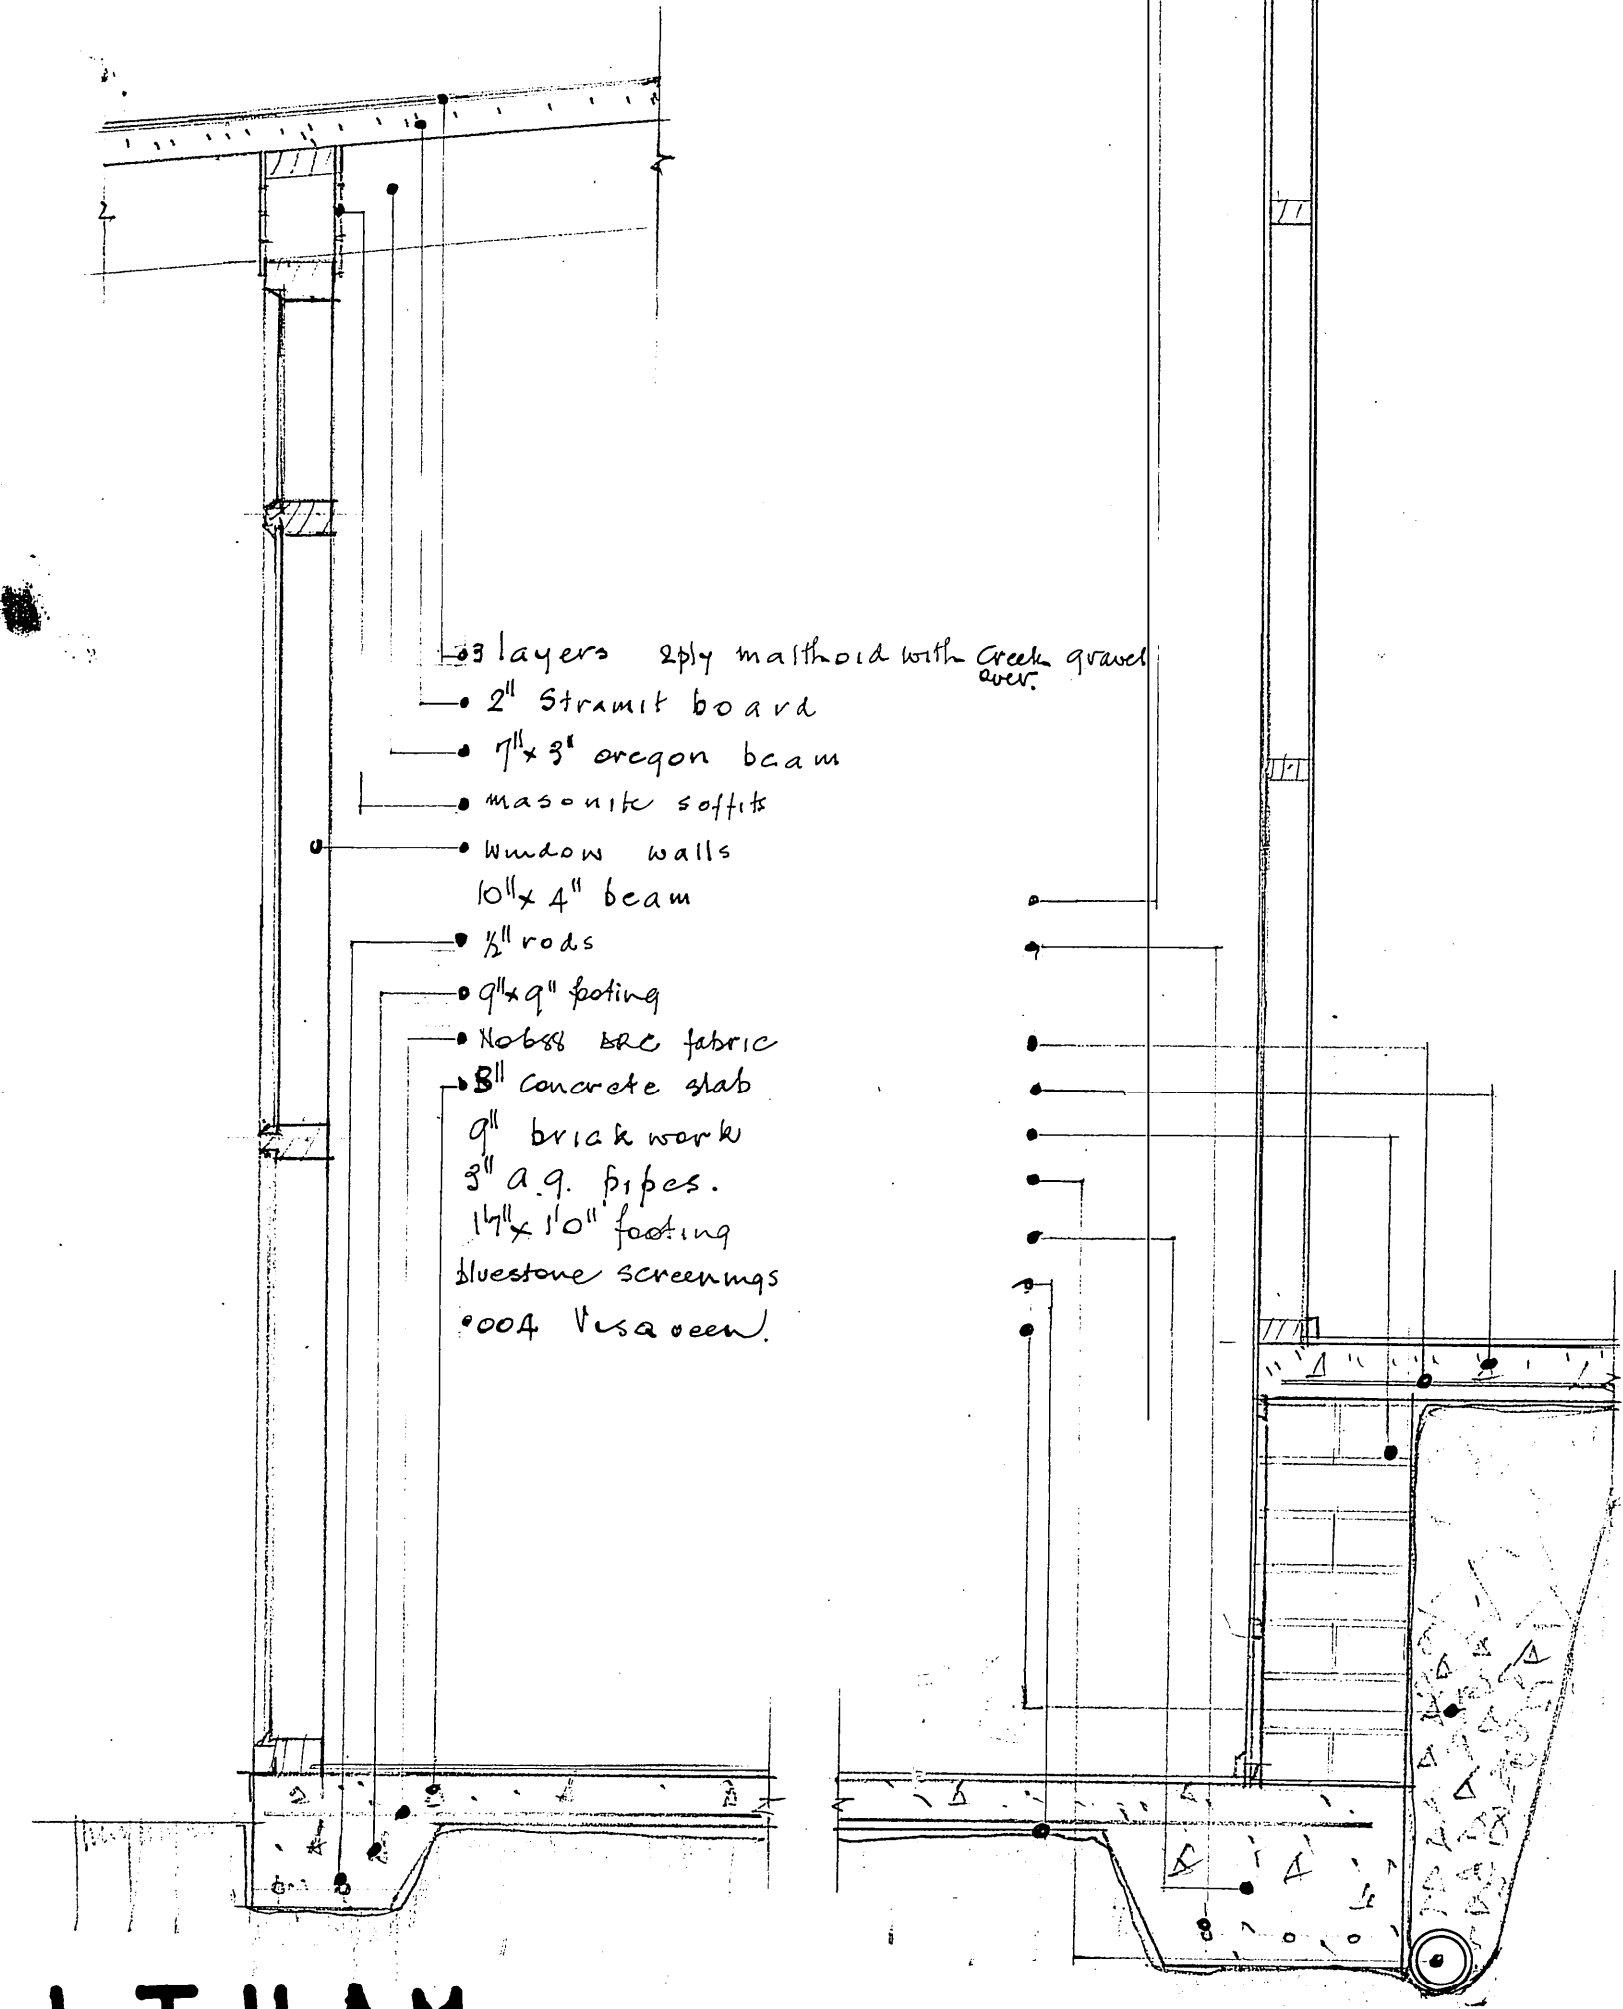 3 layers 2ply malthoid with Creek gravel
over.
2" Stramit board
7"x 3" oregon beam
masonite soffits
Window walls
10"x 4" beam
1/2" rods
9"x9" footing
No688 ARC fabric
3" Concrete slab
9" brickwork
3" a.g. pipes.
1'7"x 1'0" footing
bluestone screenings
.004 Visqueen.